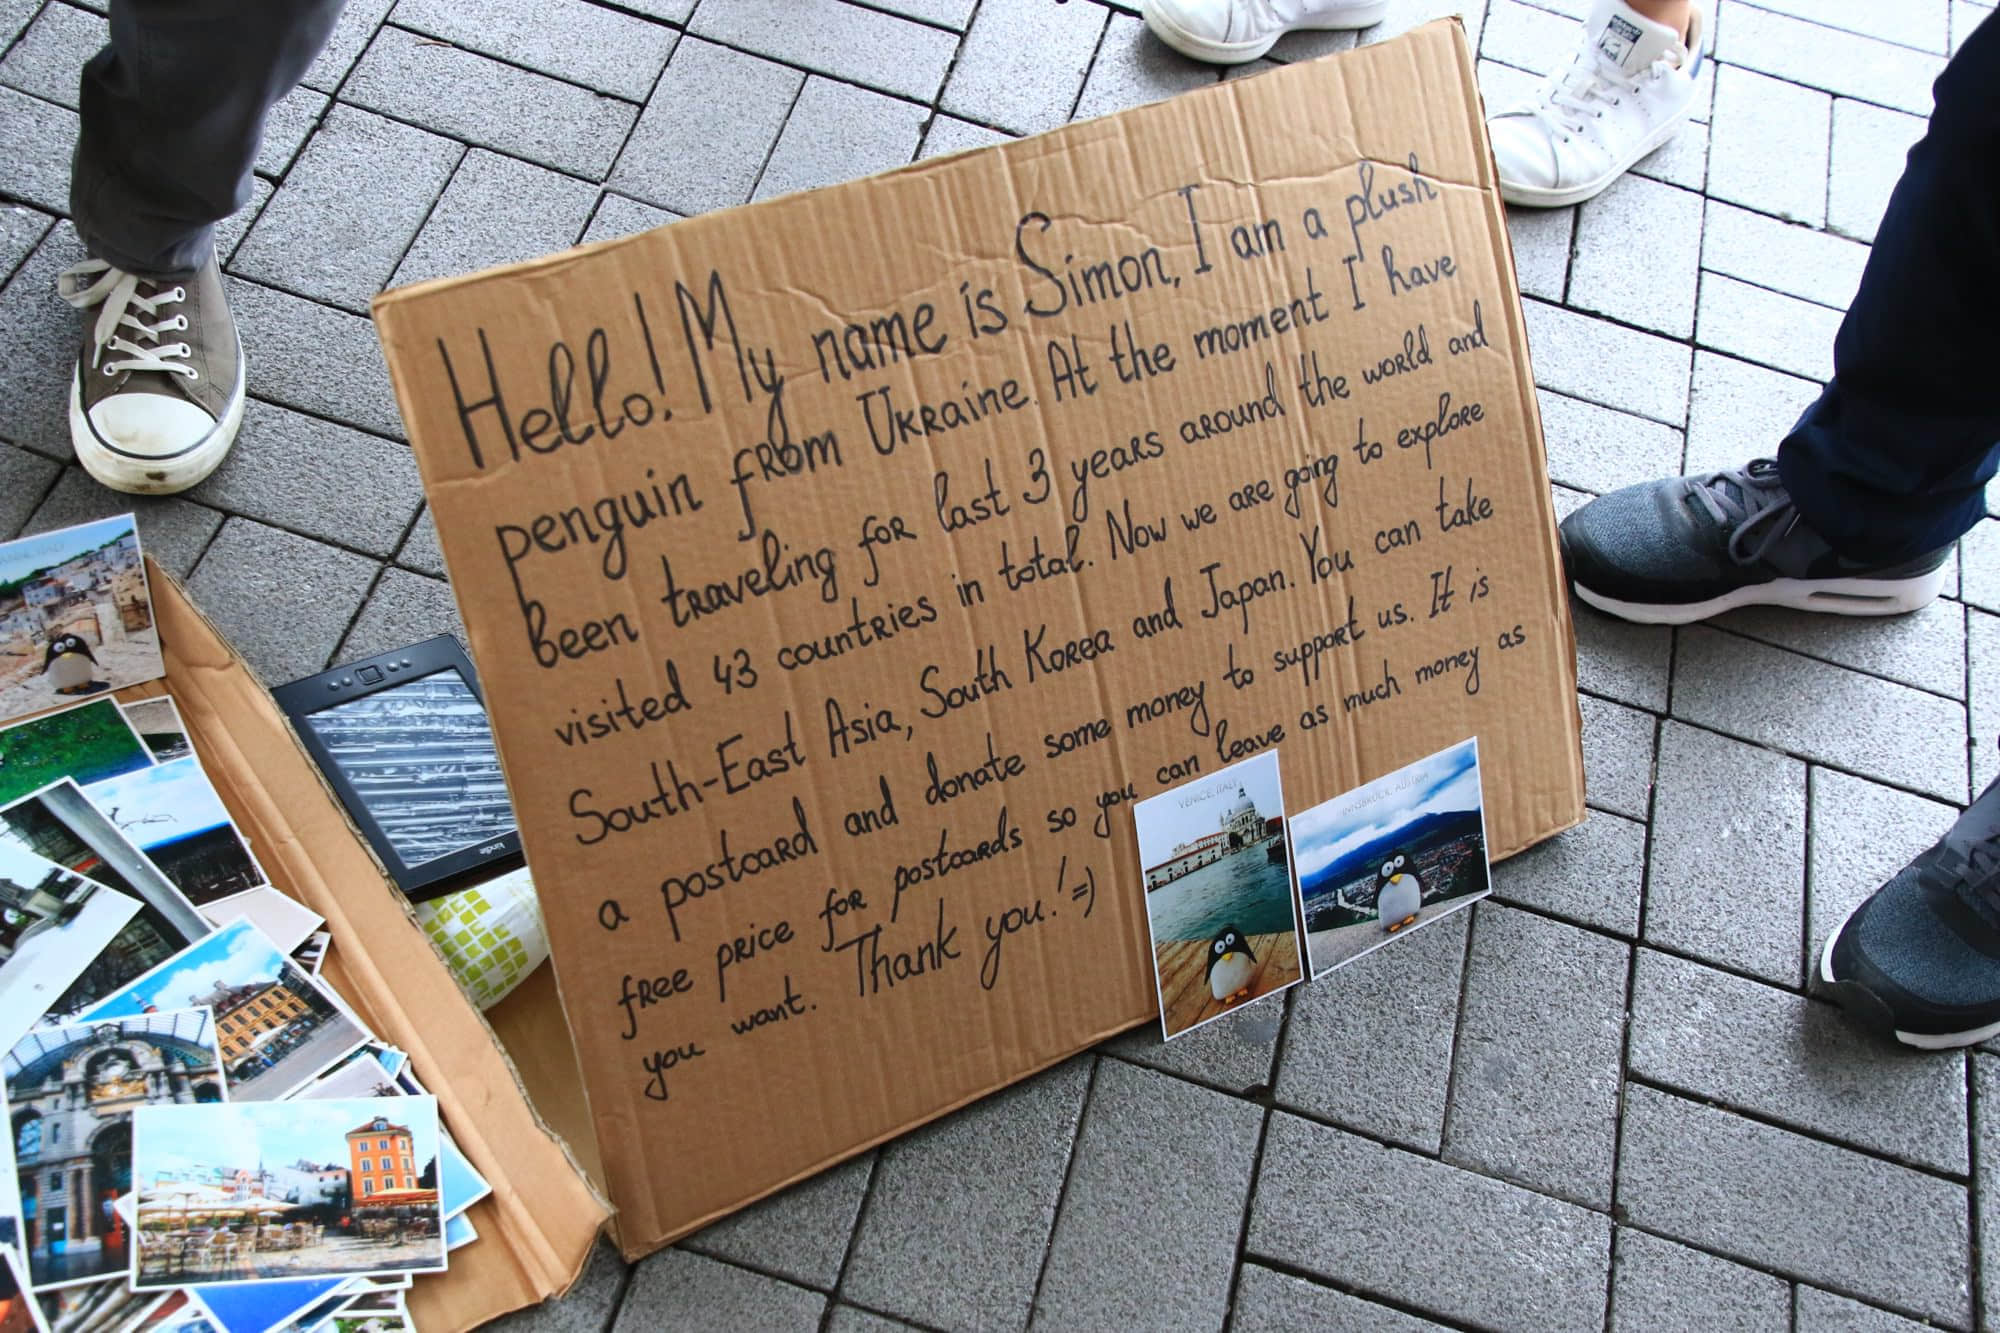 Hello! My name is Simon, I am a plush
penguin from Ukraine. At the moment I have
been traveling for last 3 years around the world and
visited 43 countries in total. Now we are going to explore
South-East Asia, South Korea and Japan. You can take
a postcard and donate some money to support us. It is
free price for postcards so you can leave as much money as
you want. Thank you! =)
VENICE, ITALY
INNSBRUCK, AUSTRIA
kindle